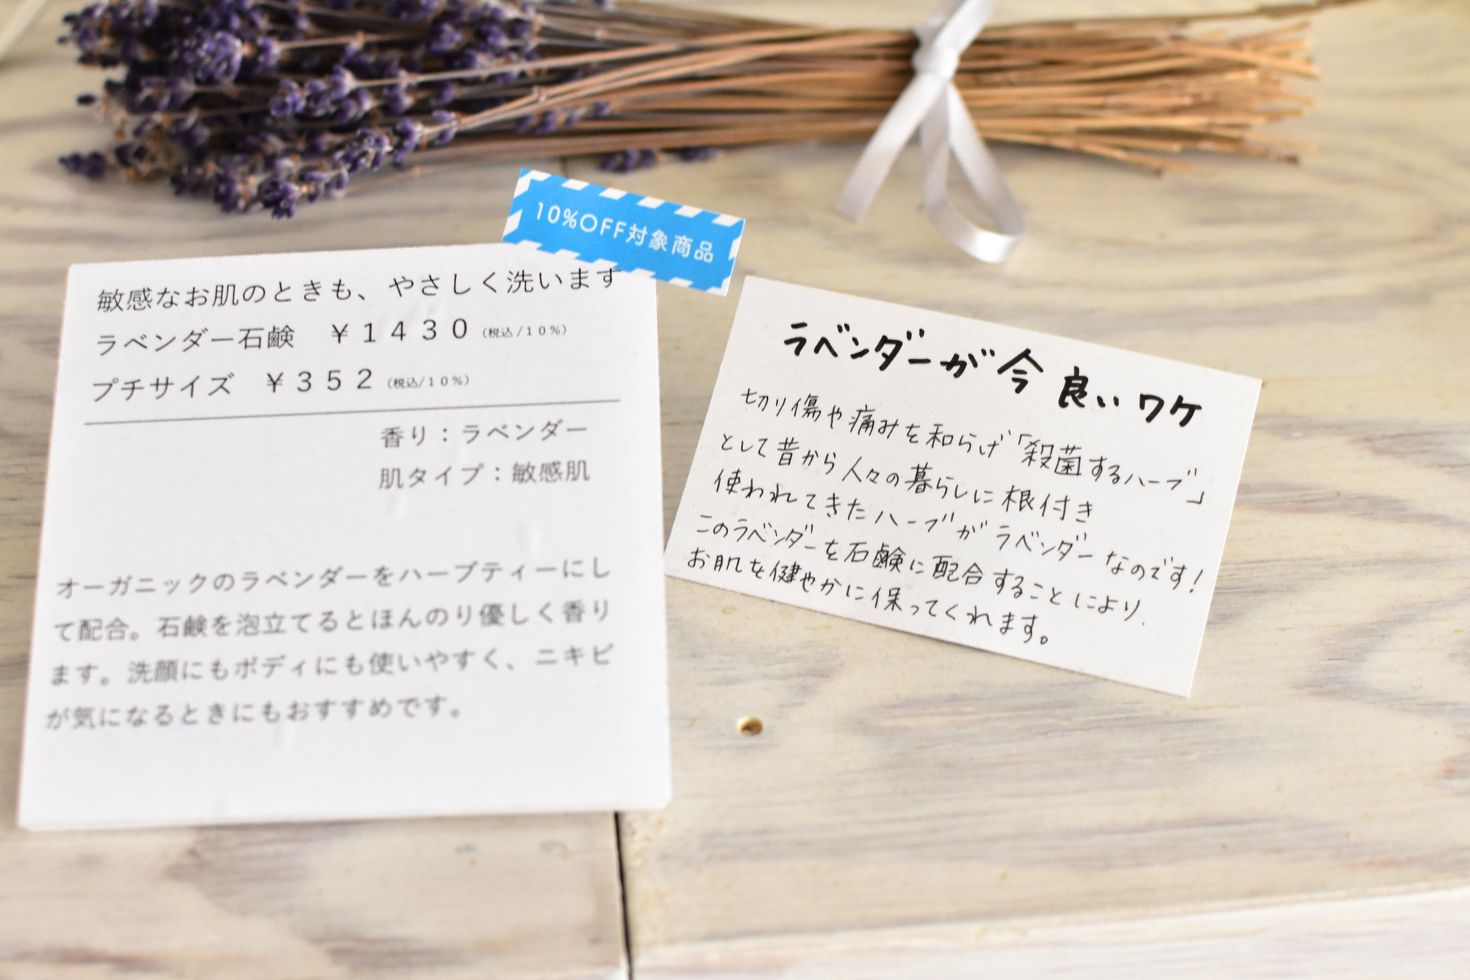 10%OFF対象商品
敏感なお肌のときも、やさしく洗います
ラベンダー石鹸　￥1430（税込/10%）
プチサイズ　￥352（税込/10%）
香り：ラベンダー
肌タイプ：敏感肌
オーガニックのラベンダーをハーブティーにし
て配合。石鹸を泡立てるとほんのり優しく香り
ます。洗顔にもボディにも使いやすく、ニキビ
が気になるときにもおすすめです。
ラベンダーが今良いワケ
切り傷や痛みを和らげ「殺菌するハーブ」
として昔から人々の暮らしに根付き
使われてきたハーブがラベンダーなのです！
このラベンダーを石鹸に配合することにより、
お肌を健やかに保ってくれます。